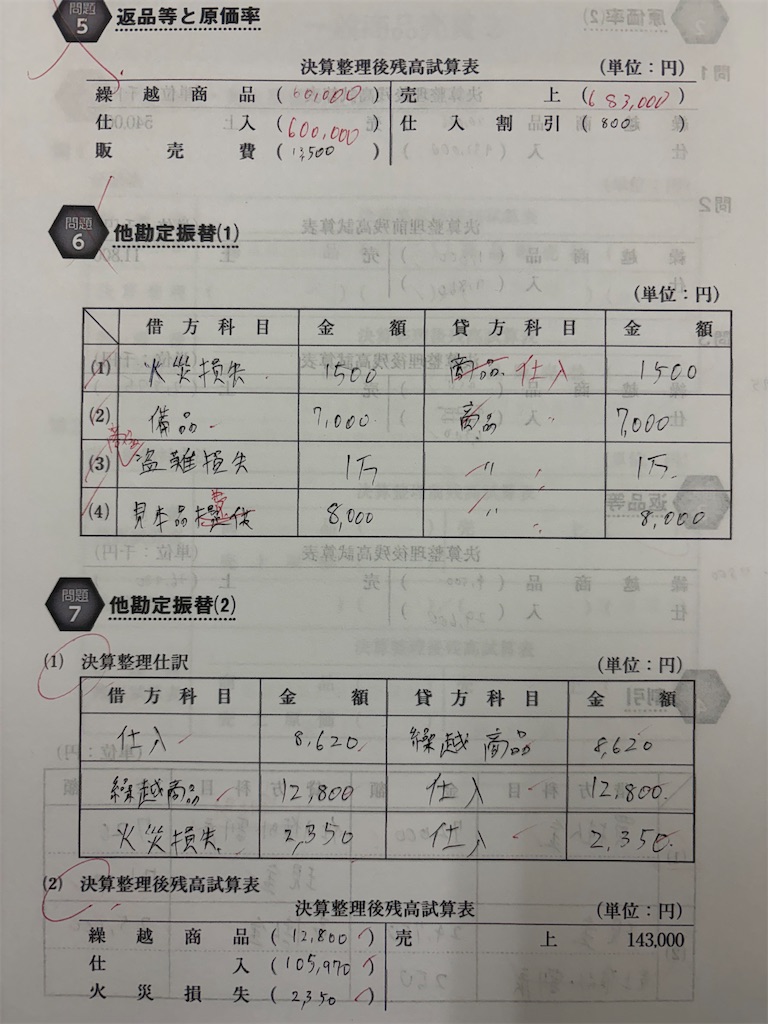 問題 5 返品等と原価率
決算整理後残高試算表 (単位：円)
繰越商品 (60,000) 売上 (683,000)
仕入 (600,000) 仕入割引 (800)
販売費 (13,500)
問題 6 他勘定振替(1)
(単位：円)
借方科目 金額 貸方科目 金額
(1) 火災損失 1500 商品 仕入 1500
(2) 備品 7,000 商品 〃 7,000
(3) 盗難損失 1万 〃 〃 1万
(4) 見本品提供 費 8,000 〃 〃 8,000
問題 7 他勘定振替(2)
(1) 決算整理仕訳 (単位：円)
借方科目 金額 貸方科目 金額
仕入 8,620 繰越商品 8,620
繰越商品 12,800 仕入 12,800
火災損失 2,350 仕入 2,350
(2) 決算整理後残高試算表
決算整理後残高試算表 (単位：円)
繰越商品 (12,800) 売上 143,000
仕入 (105,970)
火災損失 (2,350)